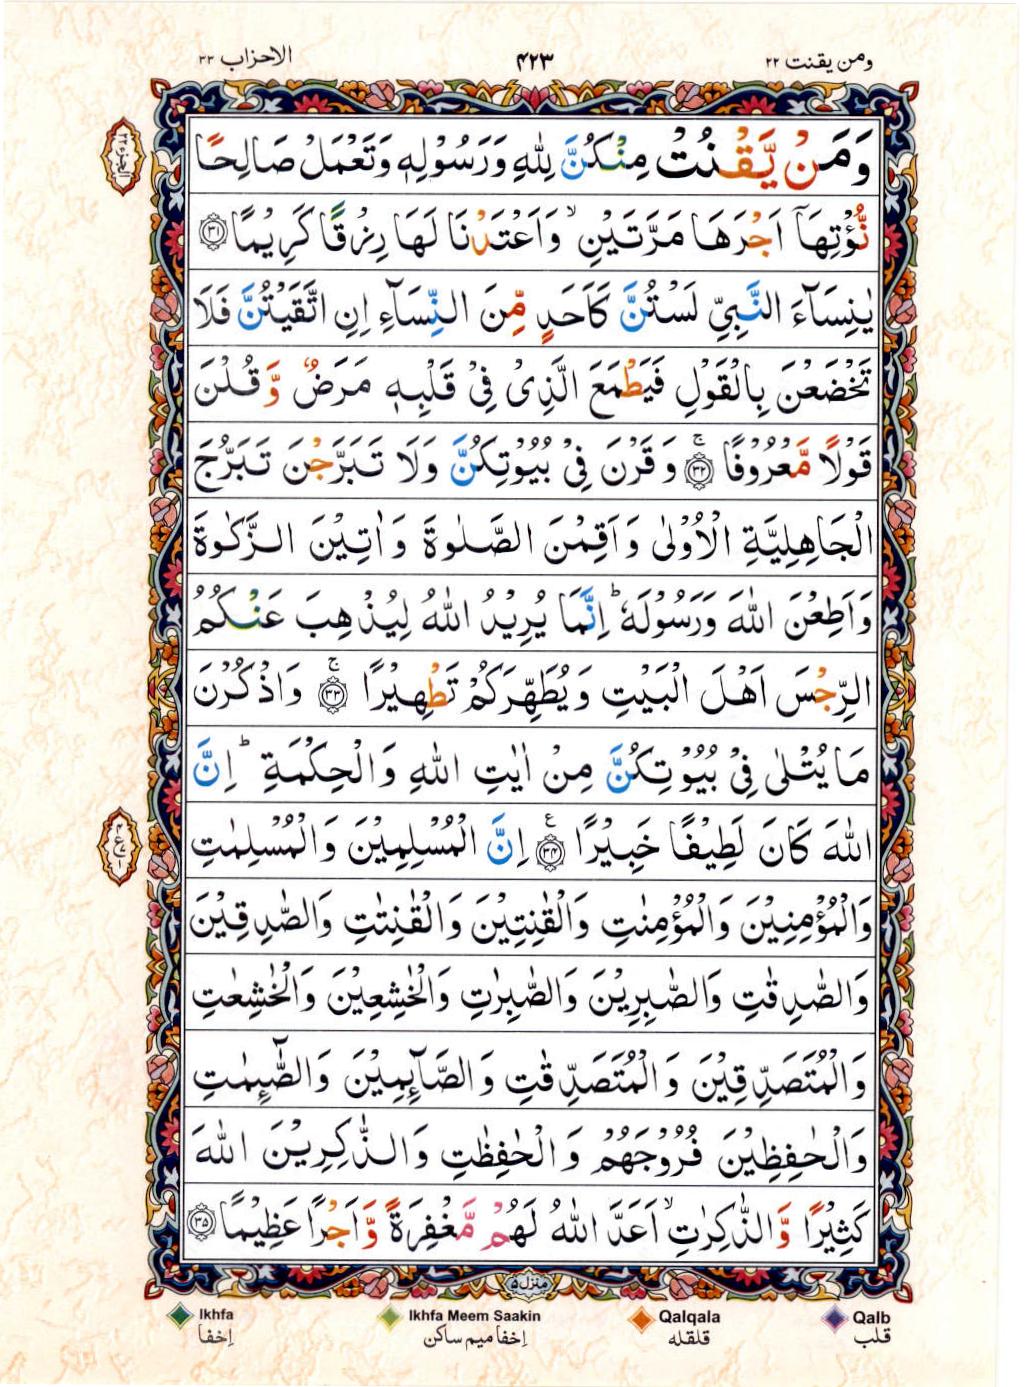 ومن یقنت ۲۲
۴۲۳
الاحزاب ۳۳
وَمَنْ يَّقْنُتْ مِنْكُنَّ لِلّٰهِ وَرَسُوْلِهٖ وَتَعْمَلْ صَالِحًا
نُّؤْتِهَاۤ اَجْرَهَا مَرَّتَيْنِ ۙ وَاَعْتَدْنَا لَهَا رِزْقًا كَرِيْمًا ﴿۳۱﴾
يٰنِسَآءَ النَّبِيِّ لَسْتُنَّ كَاَحَدٍ مِّنَ النِّسَآءِ اِنِ اتَّقَيْتُنَّ فَلَا
تَخْضَعْنَ بِالْقَوْلِ فَيَطْمَعَ الَّذِىْ فِىْ قَلْبِهٖ مَرَضٌ وَّقُلْنَ
قَوْلًا مَّعْرُوْفًا ﴿۳۲﴾ۚ وَقَرْنَ فِىْ بُيُوْتِكُنَّ وَلَا تَبَرَّجْنَ تَبَرُّجَ
الْجَاهِلِيَّةِ الْاُوْلٰى وَاَقِمْنَ الصَّلٰوةَ وَاٰتِيْنَ الزَّكٰوةَ
وَاَطِعْنَ اللّٰهَ وَرَسُوْلَهٗ ؕ اِنَّمَا يُرِيْدُ اللّٰهُ لِيُذْهِبَ عَنْكُمُ
الرِّجْسَ اَهْلَ الْبَيْتِ وَيُطَهِّرَكُمْ تَطْهِيْرًا ﴿۳۳﴾ۚ وَاذْكُرْنَ
مَا يُتْلٰى فِىْ بُيُوْتِكُنَّ مِنْ اٰيٰتِ اللّٰهِ وَالْحِكْمَةِ ؕ اِنَّ
اللّٰهَ كَانَ لَطِيْفًا خَبِيْرًا ﴿۳۴﴾ع اِنَّ الْمُسْلِمِيْنَ وَالْمُسْلِمٰتِ
وَالْمُؤْمِنِيْنَ وَالْمُؤْمِنٰتِ وَالْقٰنِتِيْنَ وَالْقٰنِتٰتِ وَالصّٰدِقِيْنَ
وَالصّٰدِقٰتِ وَالصّٰبِرِيْنَ وَالصّٰبِرٰتِ وَالْخٰشِعِيْنَ وَالْخٰشِعٰتِ
وَالْمُتَصَدِّقِيْنَ وَالْمُتَصَدِّقٰتِ وَالصَّآئِمِيْنَ وَالصّٰٓئِمٰتِ
وَالْحٰفِظِيْنَ فُرُوْجَهُمْ وَالْحٰفِظٰتِ وَالذّٰكِرِيْنَ اللّٰهَ
كَثِيْرًا وَّالذّٰكِرٰتِ ۙ اَعَدَّ اللّٰهُ لَهُمْ مَّغْفِرَةً وَّاَجْرًا عَظِيْمًا ﴿۳۵﴾
منزل ۵
Ikhfa
Ikhfa Meem Saakin
Qalqala
Qalb
اِخفا
اِخفا میم ساکن
قلقلہ
قلب